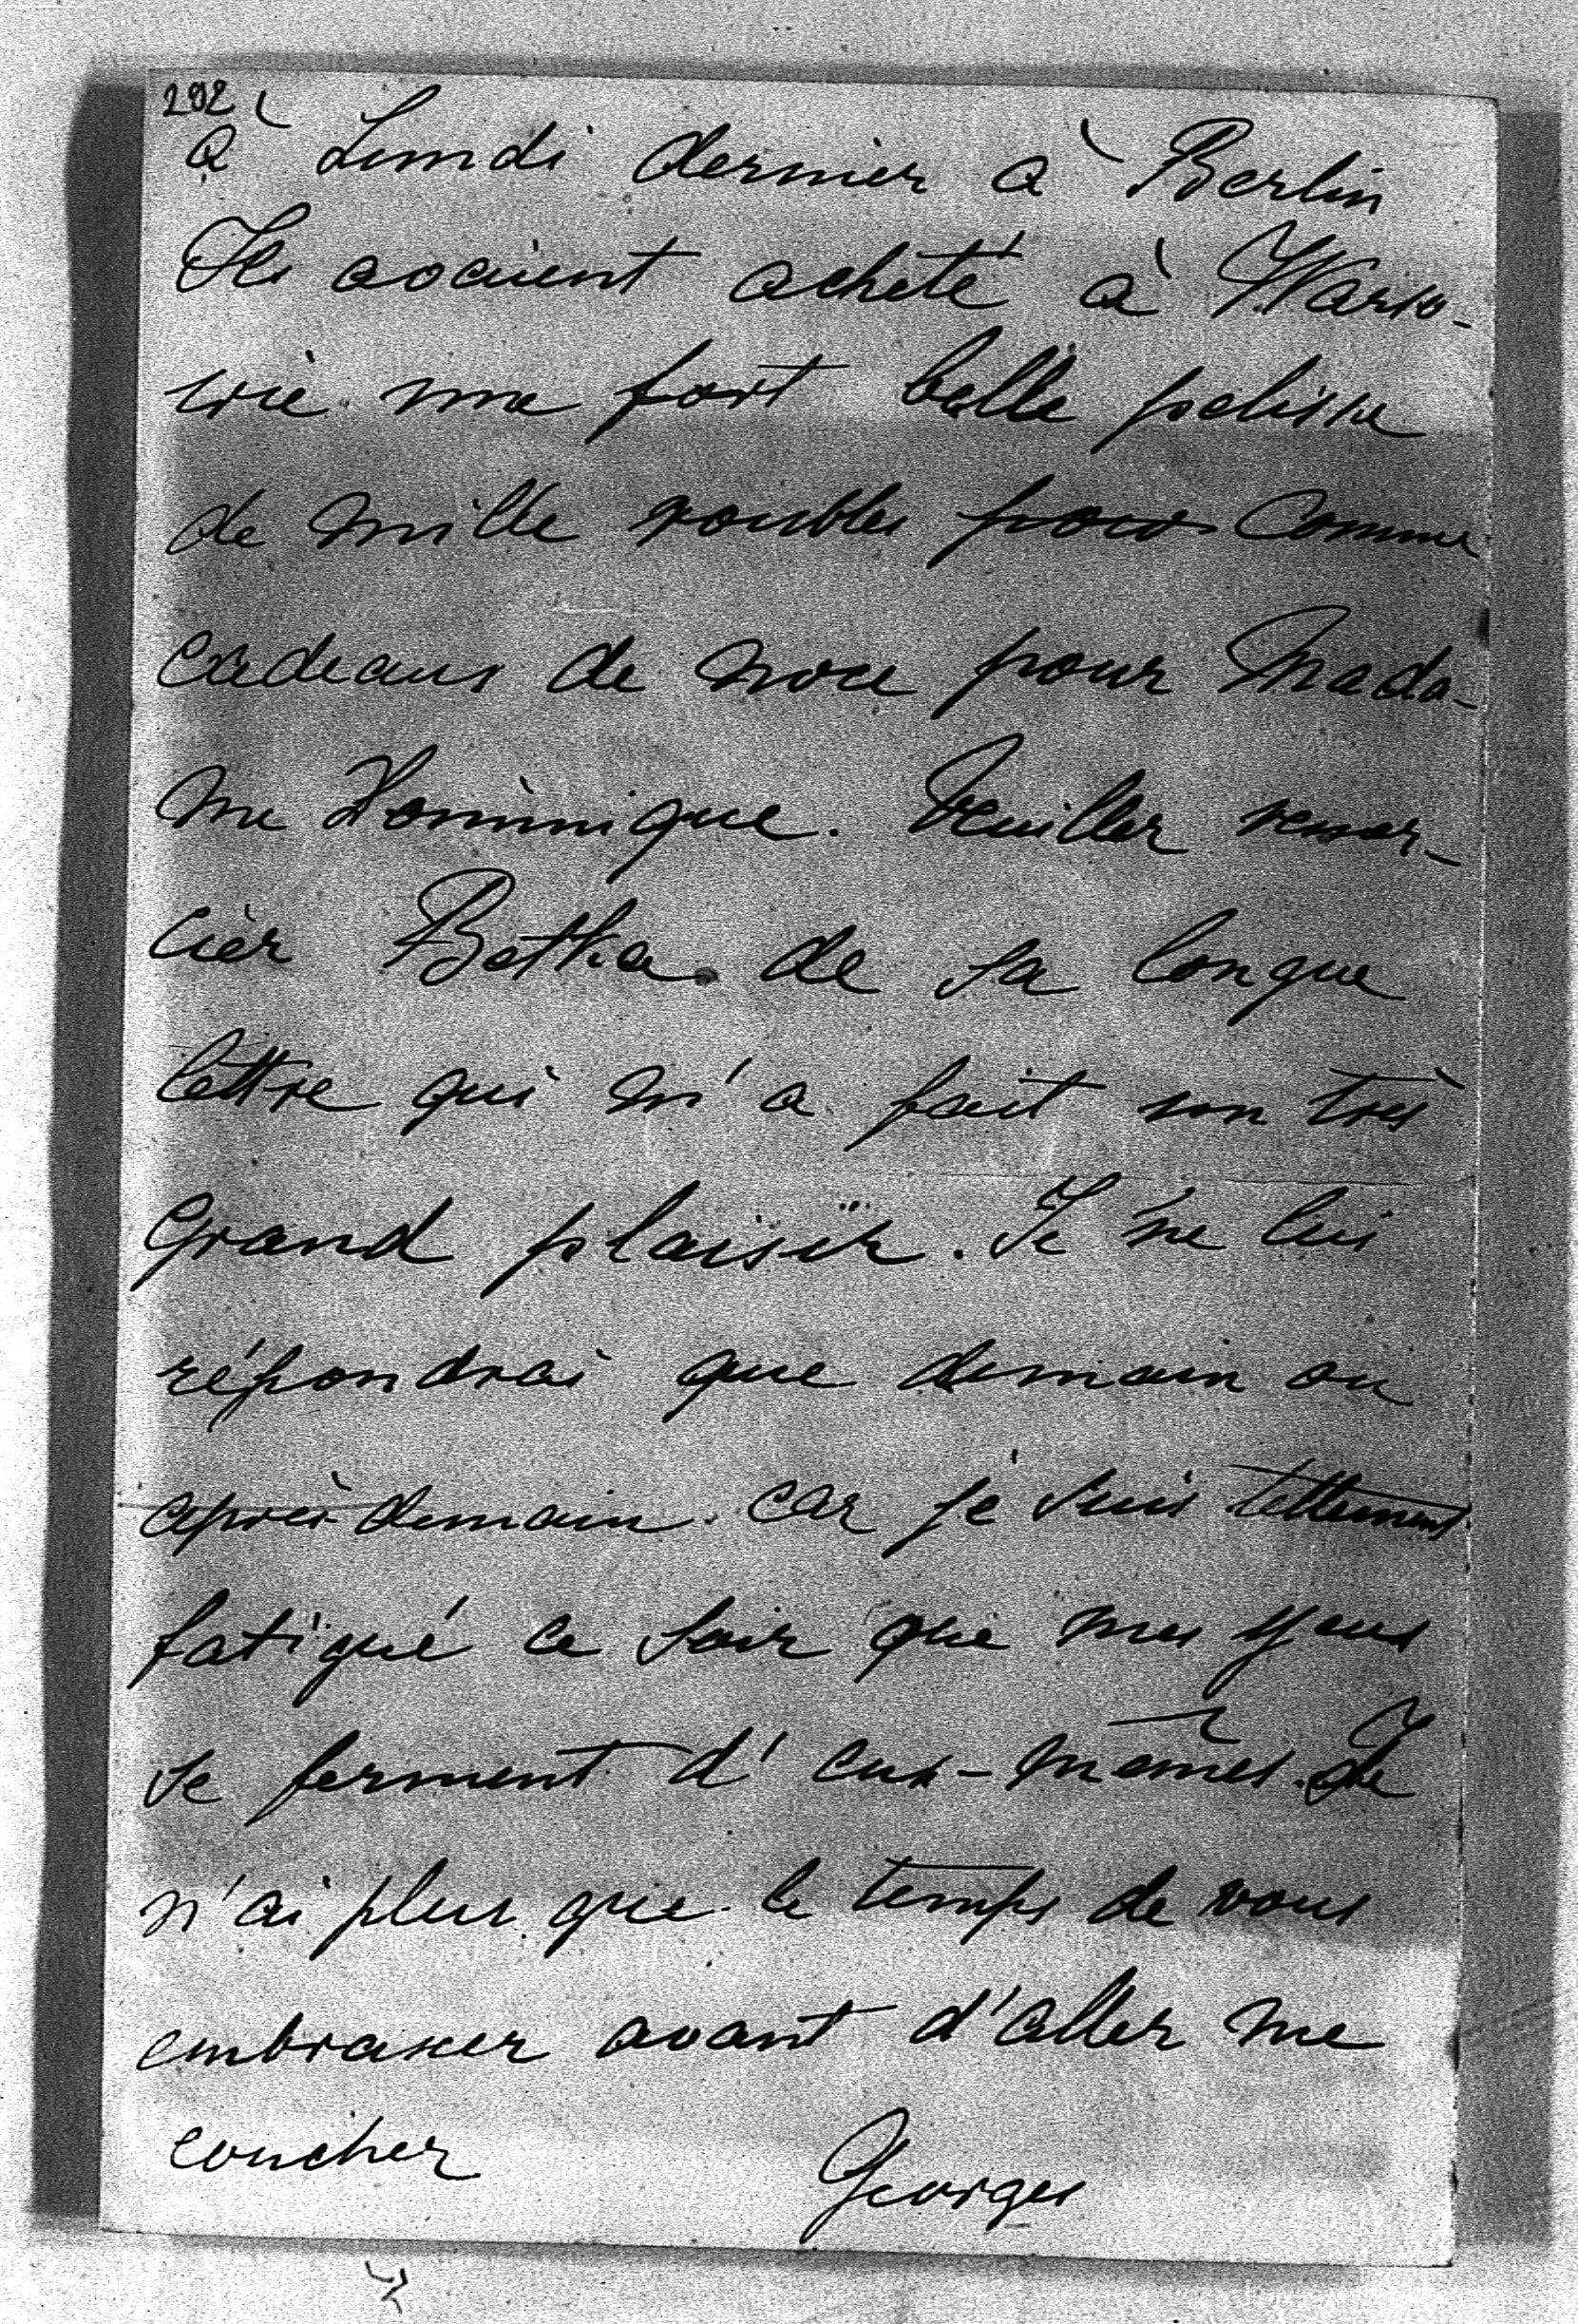 292
à Lundi dernier à Berlin
Ils avaient acheté à Warso-
vie une fort belle pelisse
de mille roubles pour comme
cadeaux de noce pour Mada-
me Dominique. Veuillez remer-
cier Betka de sa longue
lettre qui m'a fait un très
grand plaisir. Je ne lui
répondrai que demain ou
après-demain car je suis tellement
fatigué ce soir que mes yeux
se ferment d'eux-mêmes. Je
n'ai plus que le temps de vous
embrasser avant d'aller me
coucher Georges